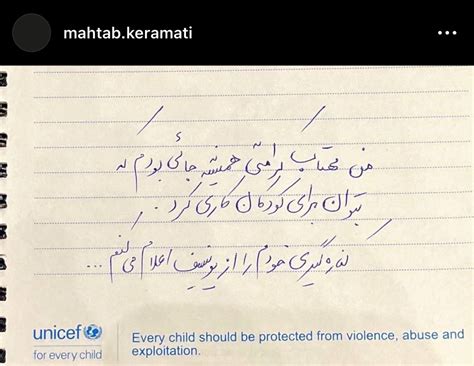 mahtab.keramati
من مهتاب کرامتی همیشه جائی بودم که
بتوان برای کودکان کاری کرد.
کناره‌گیری خودم را از یونیسف اعلام می‌کنم...
unicef
for every child
Every child should be protected from violence, abuse and
exploitation.